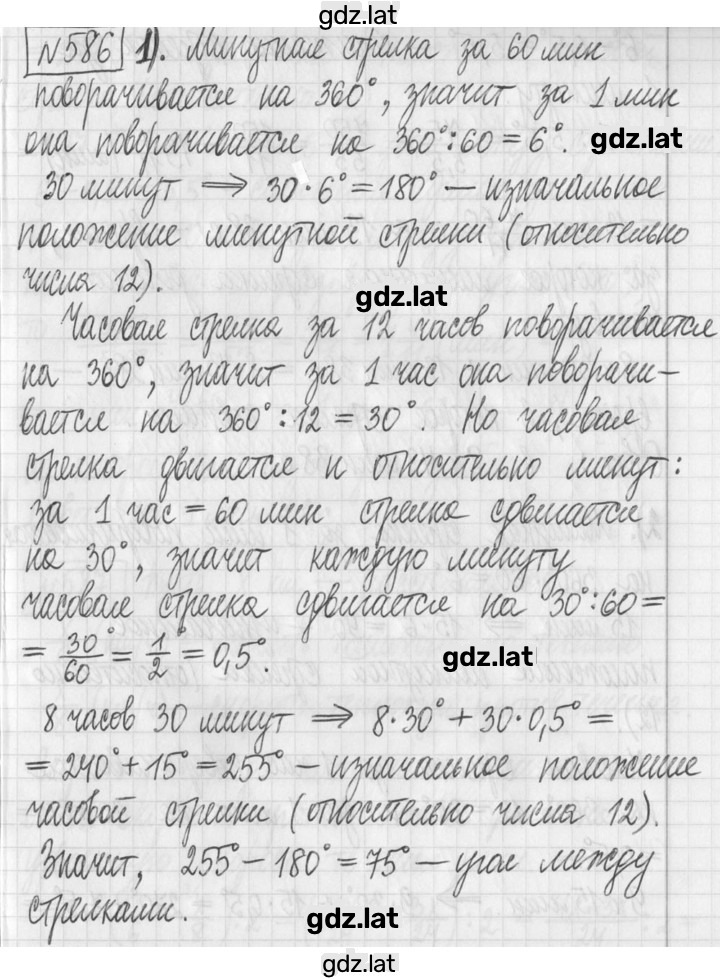 gdz.lat
№586 1). Минутная стрелка за 60 мин
поворачивается на 360°, значит за 1 мин
она поворачивается на 360°:60=6°. gdz.lat
30 минут ⟹ 30·6°=180° — изначальное
положение минутной стрелки (относительно
числа 12).
gdz.lat
Часовая стрелка за 12 часов поворачивается
на 360°, значит за 1 час она поворачи-
вается на 360°:12=30°. Но часовая
стрелка двигается и относительно минут:
за 1 час = 60 мин стрелка сдвигается
на 30°, значит каждую минуту
часовая стрелка сдвигается на 30°:60=
= 30°/60 = 1°/2 = 0,5°. gdz.lat
8 часов 30 минут ⟹ 8·30°+30·0,5°=
= 240°+15°=255° — изначальное положение
часовой стрелки (относительно числа 12).
Значит, 255°-180°=75° — угол между
стрелками.
gdz.lat
gdz.lat